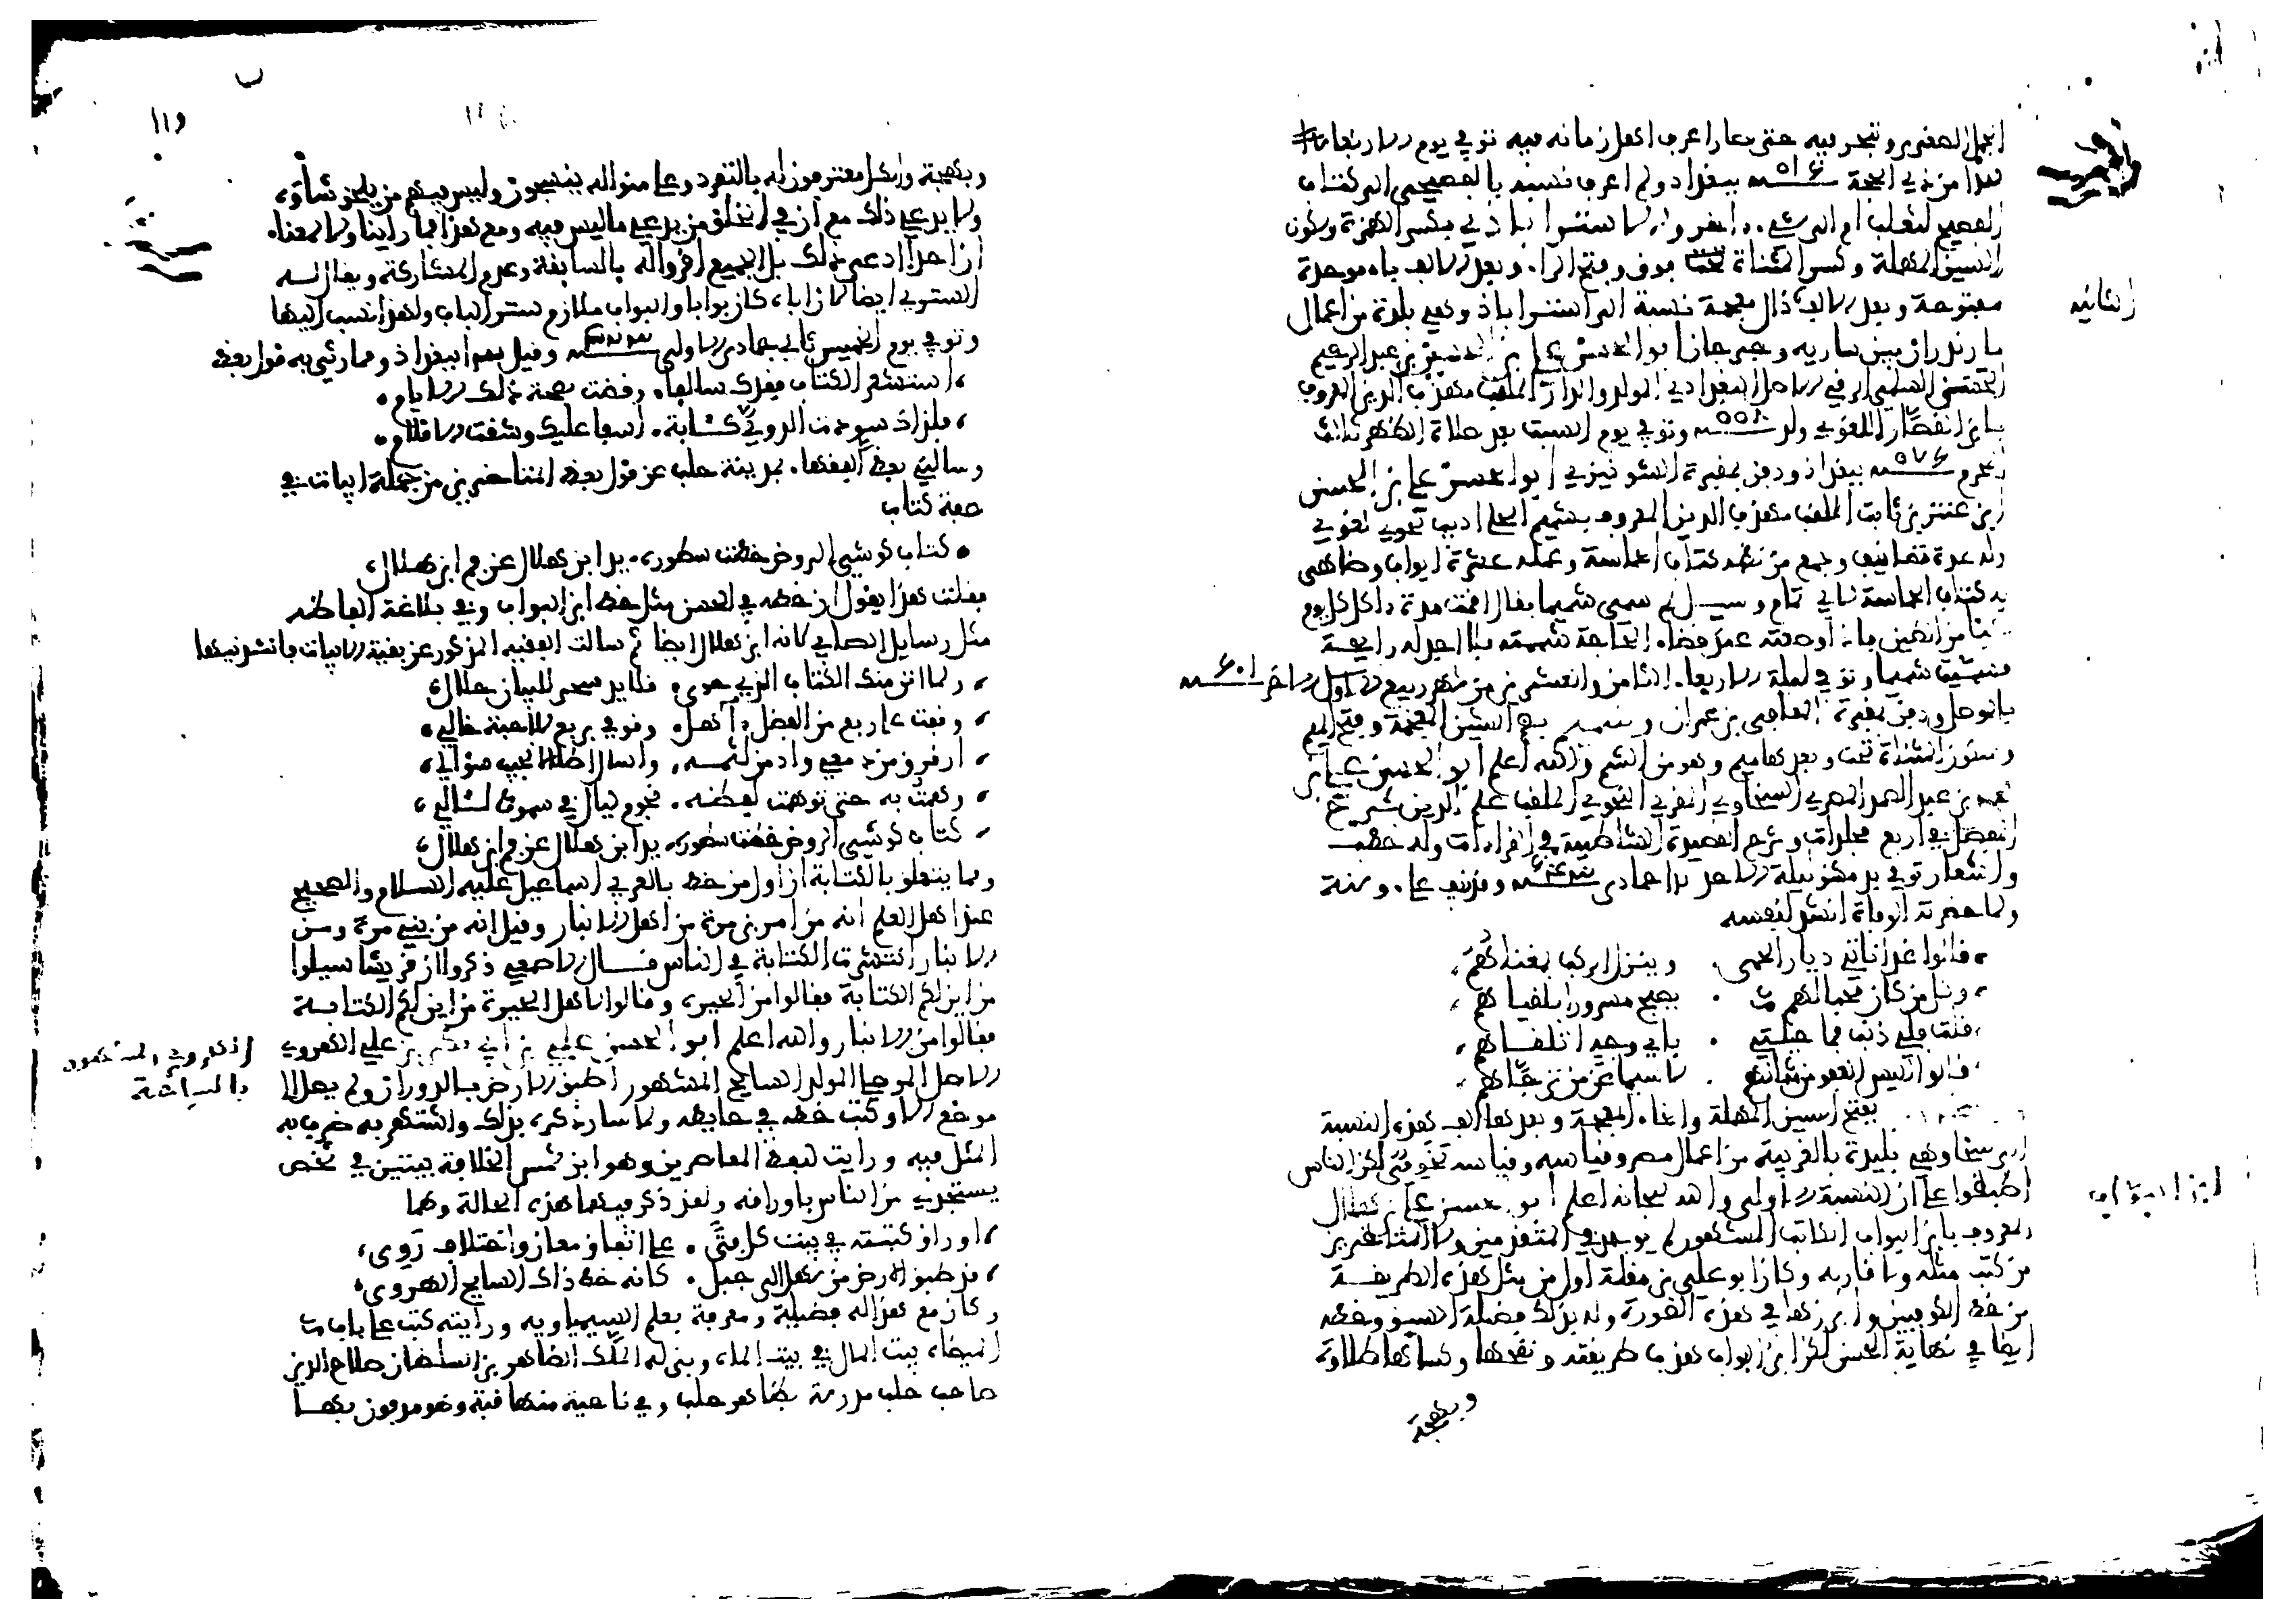 الجمل الصغير وتبحر فيه حتى صار اعرف اهل زمانه فيه توفي يوم الاربعاء
من ذي الحجة ٥١٦ ببغداد ولم اعرف نسبته بالفصيحي الى كتاب
الفصيح لثعلب ام الى شيء اخر والاستراباذي بكسر الهمزة وسكون
السين المهملة وكسر المثناة فوق وفتح الراء وبعد الالف باء موحدة
مفتوحة وبعد الالف ذال معجمة نسبة الى استراباذ وهي بلدة من اعمال
مازندران بين سارية وجرجان ابو الحسن علي بن عبد الرحيم
السلمي الرقي الاصل البغدادي المولد والدار الملقب مهذب الدين المعروف
بابن العصار اللغوي ولد ٥٠٨ وتوفي يوم السبت بعد صلاة الظهر ثالث
المحرم ٥٧٦ ببغداد ودفن بمقبرة الشونيزي ابو الحسن علي بن الحسن
بن عنتر بن ثابت الملقب مهذب الدين المعروف بشميم الحلي اديب نحوي لغوي
وله عدة تصانيف وجمع من نظمه كتاب الحماسة وعمله عشرة ابواب وضاهى
به كتاب الحماسة لابي تمام وسيل لم سمي شميما فقال اقمت مدة داكل كل يوم
شيئا من الطين فاذا وضعته عند قضاء الحاجة شممته فلا اجد له رايحة
فسميت شميما وتوفي ليلة الاربعاء الثامن والعشرين من شهر ربيع ٦٠١
بالموصل ودفن بمقبرة المعافى بن عمران وشميم بضم الشين المعجمة وفتح الميم
وسكون المثناة تحت وبعدها ميم وهو من الشم والله اعلم ابو الحسن علي بن
محمد بن عبد الصمد المصري السخاوي المقري النحوي الملقب علم الدين شرح
المفصل في اربع مجلدات وشرح القصيدة الشاطبية في القراءات وله خطب
واشعار توفي بدمشق ليلة الاحد جمادى
ولما حضرته الوفاة انشد لنفسه
قالوا غدا ناتي ديار الحمى وينزل الركب بمغناهم
وكل من كان محبا لهم يصبح مسرورا بلقياهم
قلت فلي ذنب فما حيلتي باي وجه اتلقاهم
قالوا اليس العفو من شانهم لا سيما عمن ترجاهم
بفتح السين المهملة والخاء المعجمة وبعدها الف هذه النسبة
الى سخا وهي بليدة بالغربية من اعمال مصر وقياسه سخوي لكن الناس
اطبقوا على النسبة الاولى والله سبحانه اعلم ابو الحسن علي بن هلال
المعروف بابن البواب الكاتب المشهور لم يوجد في المتقدمين ولا المتاخرين
من كتب مثله ولا قاربه وكان ابو علي بن مقلة اول من نقل هذه الطريقة
من خط الكوفيين وابرزها في هذه الصورة وله بذلك فضيلة السبق وخطه
ايضا في نهاية الحسن لكن ابن البواب هذب طريقته ونقحها وكساها طلاوة
وبهجة
ابن البواب
١١٩
وبهجة والكل معترفون له بالتفرد وعلى منواله ينسجون وليس فيهم من يلحق شاوه
ولا يدعي ذلك مع ان في الخلق من يدعي ما ليس فيه ومع هذا فما راينا ولا سمعنا
ان احدا ادعى ذلك بل الجميع اقروا له بالسابقة وعدم المشاركة ويقال له
الستري ايضا لان اباه كان بوابا والبواب ملازم ستر الباب ولهذا نسب اليها
وتوفي يوم الخميس ثاني جمادى الاولى وقيل ببغداذ ومما رثي به قول بعضهم
استشعر الكتاب فقدك سالفا وقضت بصحة ذلك الايام
فلذاك سودت الدوي كئابة اسفا عليك وشقت الاقلام
وسالني بعض الفقهاء بمدينة حلب عن قول بعض المتاخرين من جملة ابيات في
صفة كتاب
كتاب كوشي الروض خطت سطوره يد ابن هلال عن فم ابن هلال
فقلت هذا يقول ان خطه في الحسن مثل خط ابن البواب وفي بلاغة الفاظه
مثل رسايل الصابي لانه ابن هلال ايضا ثم سالت الفقيه المذكور عن بقية الابيات فانشدنيها
ولما اتى منك الكتاب الذي حوى قلايد سحر للبيان حلال
وقفت على ربع من الفضل آهل وقوفي بربع للاحبة خال
ارقرق من دمعي وادمن لثمه واسال اطلالا تجيب سؤالي
وهمت به حتى توهمت لفظه نجوم ليال في سموط لئالي
كتاب كوشي الروض خطت سطوره يد ابن هلال عن فم ابن هلال
ومما يتعلق بالكتابة ان اول من خط بالعربي اسماعيل عليه السلام والصحيح
عند اهل العلم انه مرامر بن مرة من اهل الانبار وقيل انه من بني مرة ومن
الانبار انتشرت الكتابة في الناس قال الاصمعي ذكروا ان قريشا سيلوا
من اين لكم الكتابة فقالوا من الحيرة وقالوا لاهل الحيرة من اين لكم الكتابة
فقالوا من الانبار والله اعلم ابو الحسن علي بن ابي بكر بن علي الهروي
الاصل الموصلي المولد السايح المشهور اطبق الارض بالدوران ولم يصل الى
موضع الا وكتب خطه في حايطه ولما سار ذكره بذلك واشتهر به ضرب به
المثل فيه ورايت لبعض المعاصرين وهو ابن شمس الخلافة بيتين في شخص
يستجدي من الناس باوراقه ولقد ذكر فيهما هذه الحالة وهما
اوراق كديته في بيت كل فتى على اتفاق معان واختلاف روي
قد طبق الارض من سهل الى جبل كانه خط ذاك السايح الهروي
وكان مع هذا له فضيلة ومعرفة بعلم السيمياويه ورايته كتب على باب
الميضاة بيت المال في بيت الماء وبنى له الملك الظاهر بن السلطان صلاح الدين
صاحب حلب مدرسة بظاهر حلب وفي ناحية منها قبة وهو مدفون بها
الهروي المشهور
بالسياحة